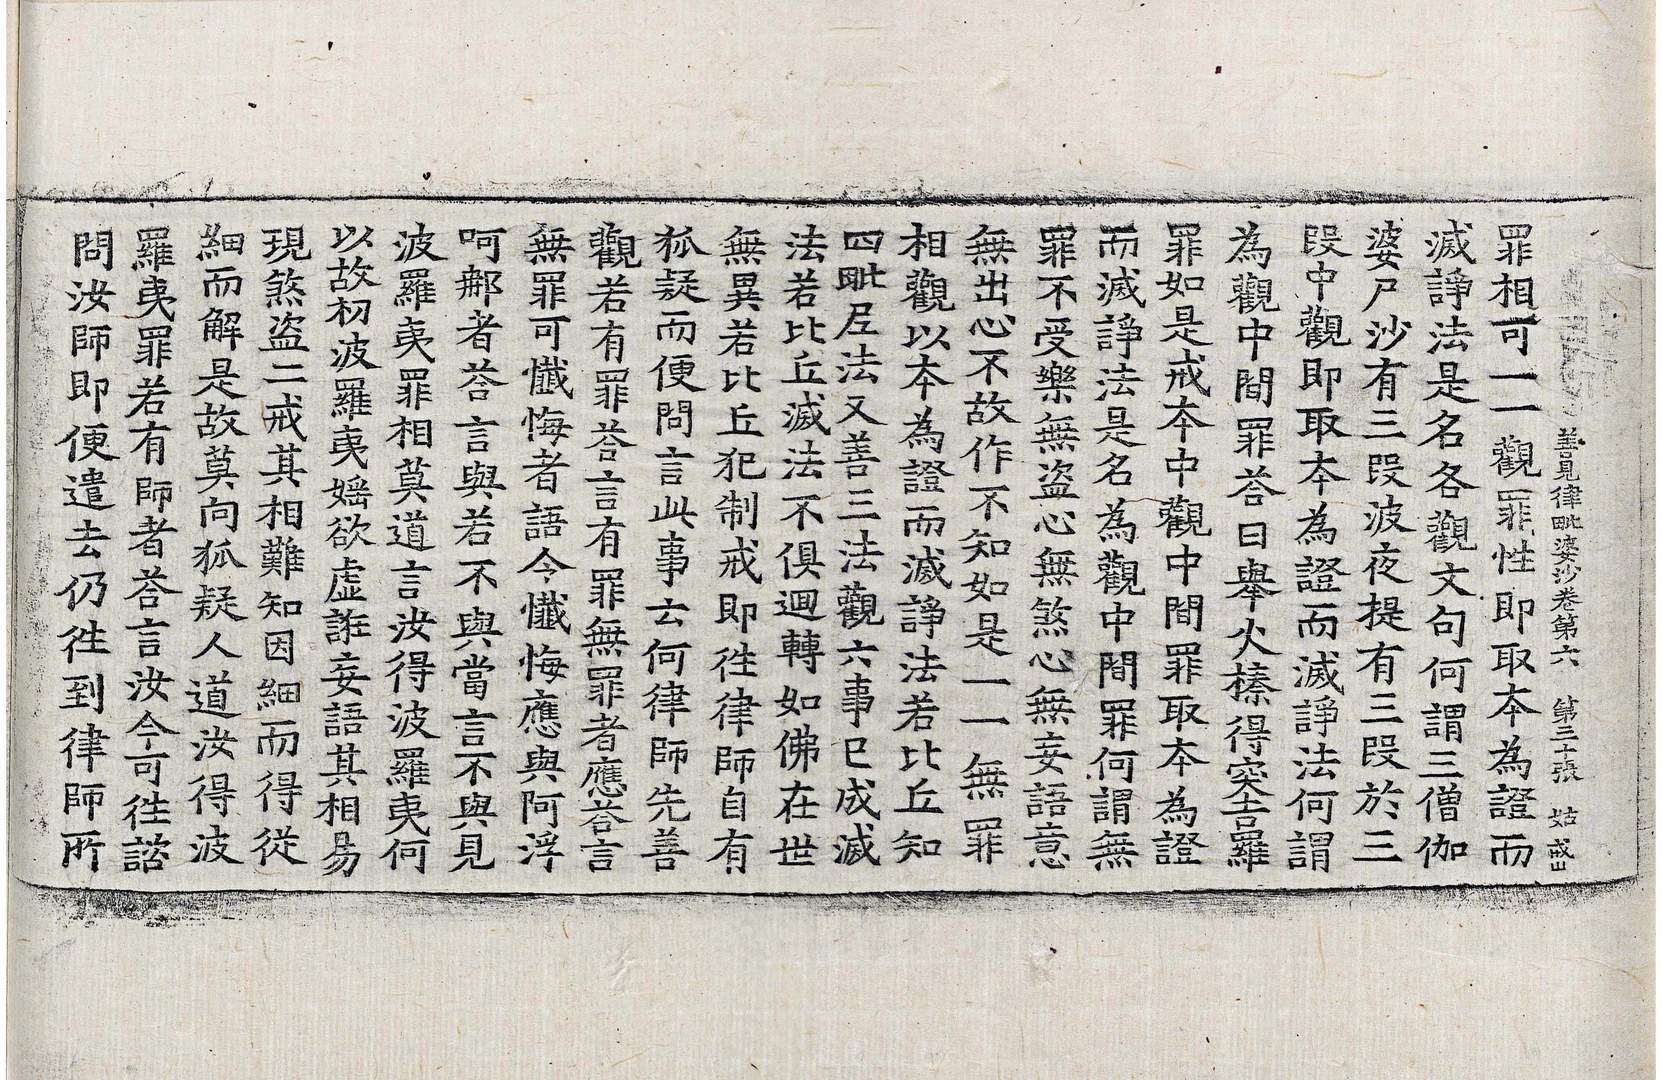 善見律毗婆沙卷第六 第三十張 姑
罪相可一一觀罪性即取本為證而
滅諍法是名各觀文句何謂三僧伽
婆尸沙有三段波夜提有三段於三
段中觀即取本為證而滅諍法何謂
為觀中間罪荅曰舉火榛得突吉羅
罪如是戒本中觀中間罪取本為證
而滅諍法是名為觀中間罪何謂無
罪不受樂無盜心無煞心無妄語意
無出心不故作不知如是一一無罪
相觀以本為證而滅諍法若比丘知
四毗尼法又善三法觀六事已成滅
法若比丘滅法不俱迴轉如佛在世
無異若比丘犯制戒即徃律師自有
狐疑而便問言此事云何律師先善
觀若有罪荅言有罪無罪者應荅言
無罪可懺悔者語令懺悔應與阿浮
呵那者荅言與若不與當言不與見
波羅夷罪相莫道言汝得波羅夷何
以故初波羅夷婬欲虛誑妄語其相易
現煞盜二戒其相難知因細而得從
細而解是故莫向狐疑人道汝得波
羅夷罪若有師者荅言汝今可徃諮
問汝師即便遣去仍徃到律師所